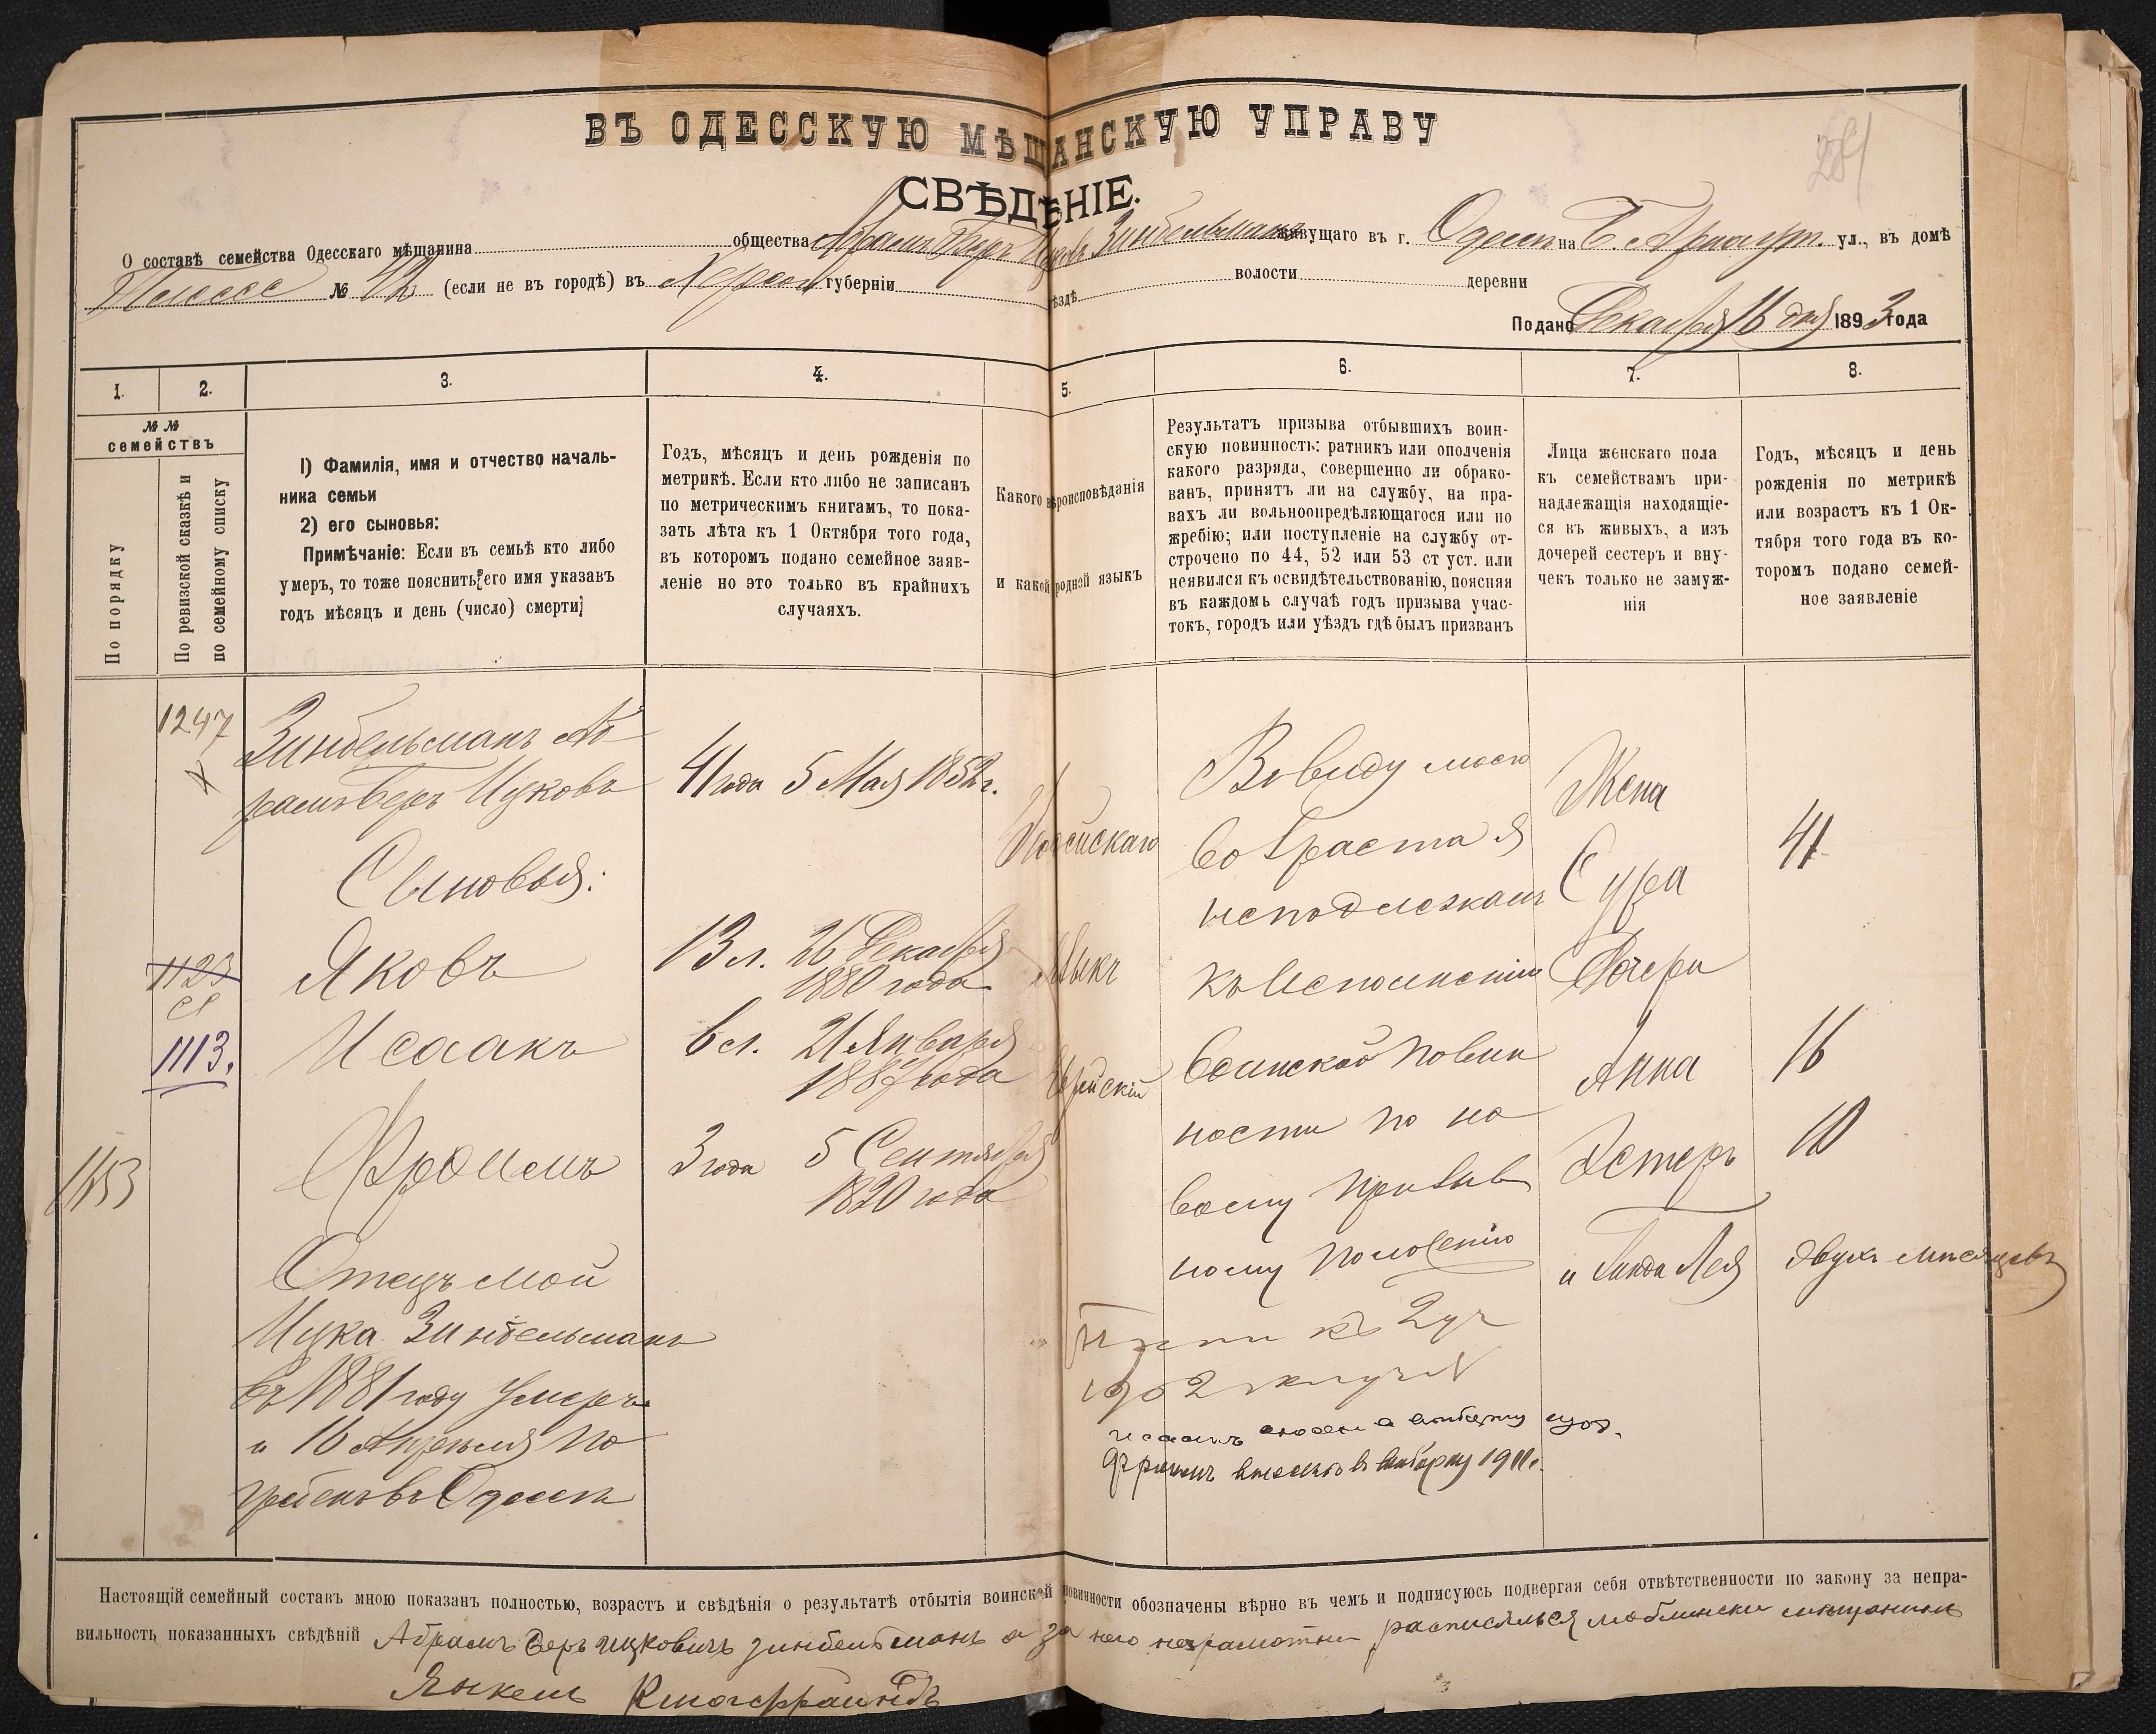 ВЪ ОДЕССКУЮ МѢЩАНСКУЮ УПРАВУ
СВѢДѢНІЕ.
О составѣ семейства Одесскаго мѣщанина общества Абрамъ Беръ Ицковъ Зинбельманъ живущаго въ г. Одессѣ на Б. Арнаут. ул., въ домѣ
№ 12 (если не въ городѣ) въ Херсон губерніи уѣздѣ волости деревни
Подано Декабря 16 дня 1893 года
1. 2. 3. 4. 5. 6. 7. 8.
№ № семействъ
По порядку
По ревизской сказкѣ и по семейному списку
1) Фамилія, имя и отчество началь-
ника семьи
2) его сыновья:
Примѣчаніе: Если въ семьѣ кто либо
умеръ, то тоже пояснить его имя указавъ
годъ мѣсяцъ и день (число) смерти
Годъ, мѣсяцъ и день рожденія по
метрикѣ. Если кто либо не записанъ
по метрическимъ книгамъ, то пока-
зать лѣта къ 1 Октября того года,
въ которомъ подано семейное заяв-
леніе но это только въ крайнихъ
случаяхъ.
Какого вѣроисповѣданія
и какой родной языкъ
Результатъ призыва отбывшихъ воин-
скую повинность: ратникъ или ополченія
какого разряда, совершенно ли обрако-
ванъ, принятъ ли на службу, на пра-
вахъ ли вольноопредѣляющагося или по
жребію; или поступленіе на службу от-
строчено по 44, 52 или 53 ст уст. или
неявился къ освидѣтельствованію, поясняя
въ каждомъ случаѣ годъ призыва учас-
токъ, городъ или уѣздъ гдѣ былъ призванъ
Лица женскаго пола
къ семействамъ при-
надлежащія находящіе-
ся въ живыхъ, а изъ
дочерей сестеръ и вну-
чекъ только не замуж-
нія
Годъ, мѣсяцъ и день
рожденія по метрикѣ
или возрастъ къ 1 Ок-
тября того года въ ко-
торомъ подано семей-
ное заявленіе
1247
Зинбельманъ Аб
рамъ Беръ Ицковъ
41 года 5 Мая 1852 г.
Сыновья:
1123
Яковъ
13 л. 26 Декабря
1880 года
1113.
Исаакъ
6 л. 21 Января
1887 года
1153
Фроимъ
3 года 5 Сентября
1890 года
Отецъ мой
Ицка Зинбельманъ
въ 1881 году умеръ
и 16 Апрѣля по
гребенъ въ Одессѣ
Іудейскаго
Языкъ
Еврейскій
Ввиду моего
возраста я
неподлежалъ
къ Исполненію
воинской повин
ности по но
вому призыв
ному положенію
къ 2 уч
1902
Фроимъ внесенъ въ выборку 1911.
Жена
Сура
41
Дочери
Анна
16
Эстеръ
10
и Лея
двухъ мѣсяцевъ
Настоящій семейный составъ мною показанъ полностью, возрастъ и свѣдѣнія о результатѣ отбытія воинской повинности обозначены вѣрно въ чемъ и подписуюсь подвергая себя отвѣтственности по закону за непра-
вильность показанныхъ свѣдѣній Абрамъ Беръ Ицковичъ Зинбельманъ а за него неграмотни расписался мещанинъ
Янкель